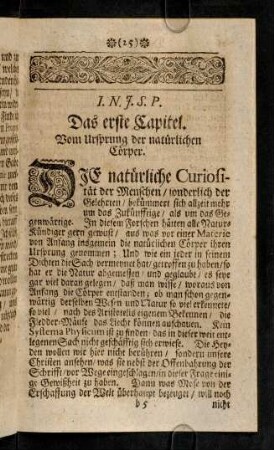 (25)
I. N. J. S. P.
Das erste Capitel.
Vom Ursprung der natürlichen
Cörper.
DIE natürliche Curiosi-
tät der Menschen / sonderlich der
Gelehrten / bekümmert sich allzeit mehr
um das Zukünfftige / als um das Ge-
genwärtige. In diesem Forschen hätten alle Natur-
Kündiger gern gewust / aus was vor einer Materie
von Anfang insgemein die natürlichen Cörper ihren
Ursprung genommen: Und wie ein jeder in seinem
Dichten die Sach vermeinet hat / getroffen zu haben / so
hat er die Natur abgemessen / und geglaubt / es seye
gar viel daran gelegen / daß man wisse / woraus von
Anfang die Cörper entstanden / ob man schon gegen-
wärtig derselben Wesen und Natur so viel erkennet /
so viel / nach des Aristotelis eigenem Bekennen / die
Fledder-Mäuse das Liecht können anschauen. Kein
Systema Physicum ist zu finden / das in dieser weit ent-
legenen Sach nicht geschäfftig sich erwiese. Die Hey-
den wollen wir hier nicht berühren / sondern unsere
Christen ansehen / was sie nebst der Offenbahrung der
Schrifft / vor Wege eingeschlagen / in dieser Frage eini-
ge Gewißheit zu haben. Dann was Mose von der
Erschaffung der Welt überhaupt bezeuget / will noch
b 5 nicht